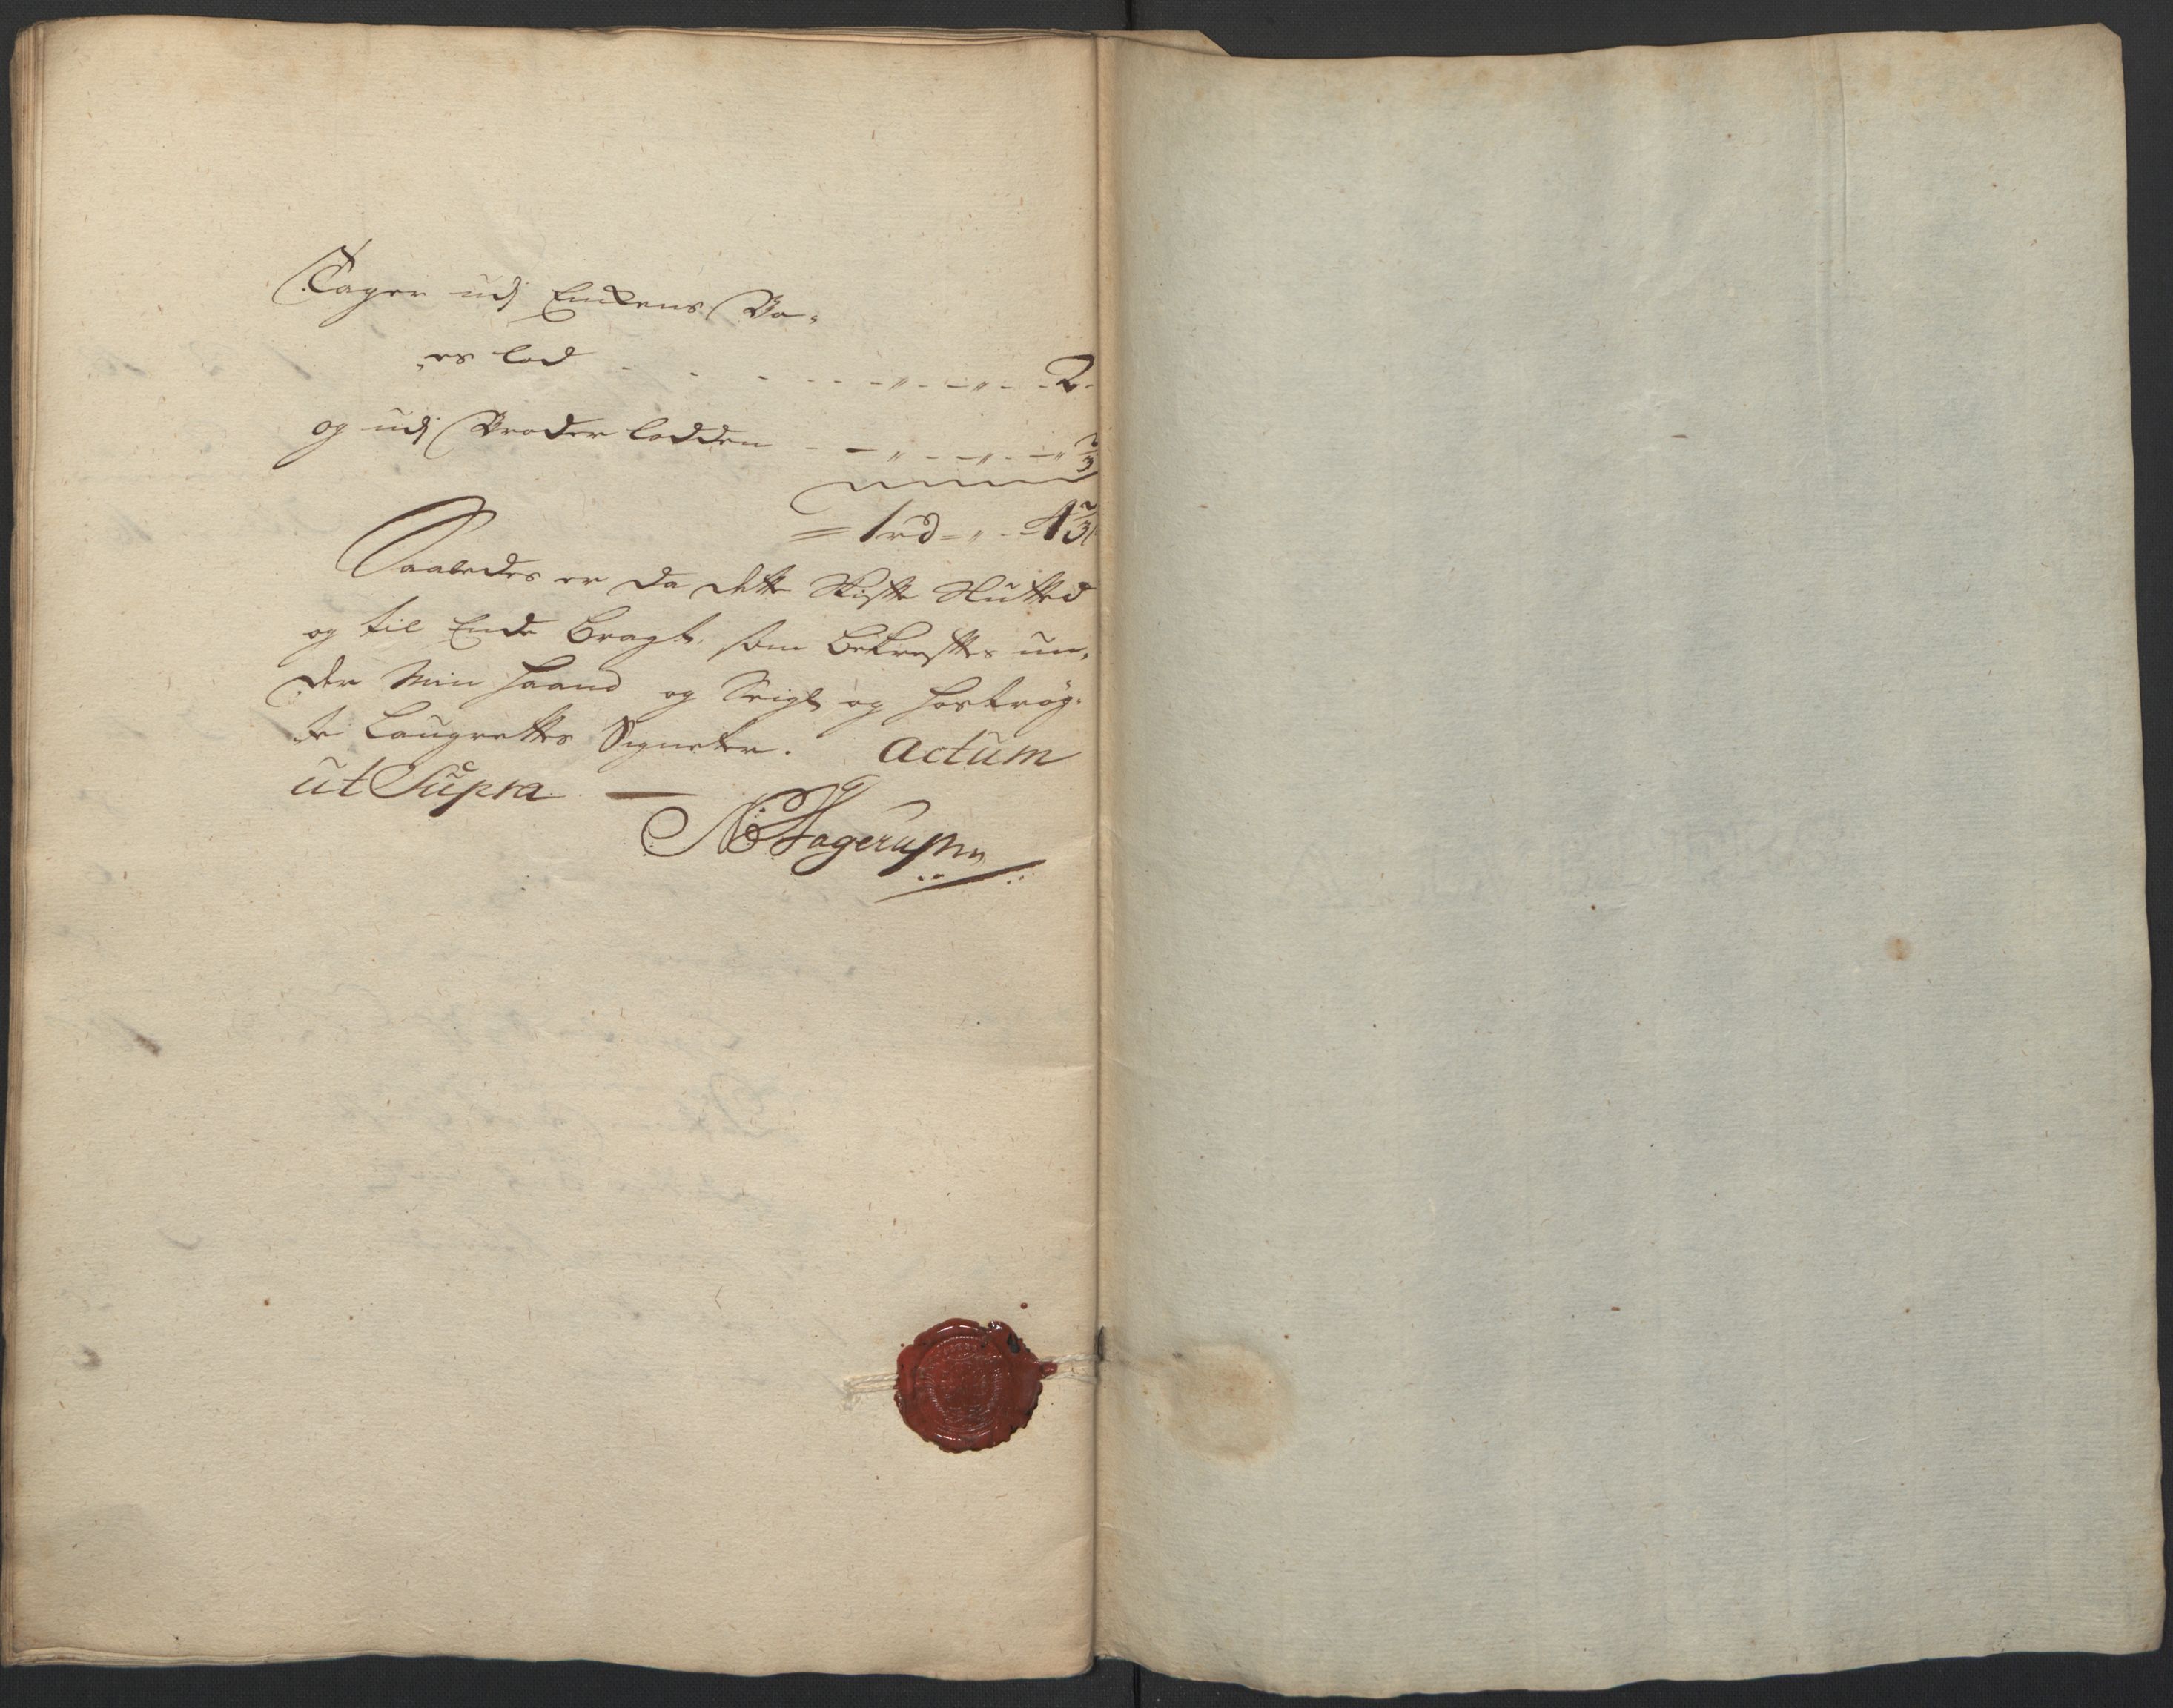 Tager udj Enkens Bo-
es lod - - - - - - - „ - - „ - - 2.
og udj Broder lodden - - „ - - „ - - „ 2/3
= 1rd = „ - 4 2/3
Saaledes er da dette Skifte Slutted
og til Ende bragt, som bekreftes un-
der Min Haand og Seigl og hostrøg-
te Laugrettes Signeter. Actum
ut Supra. —
Hagerup